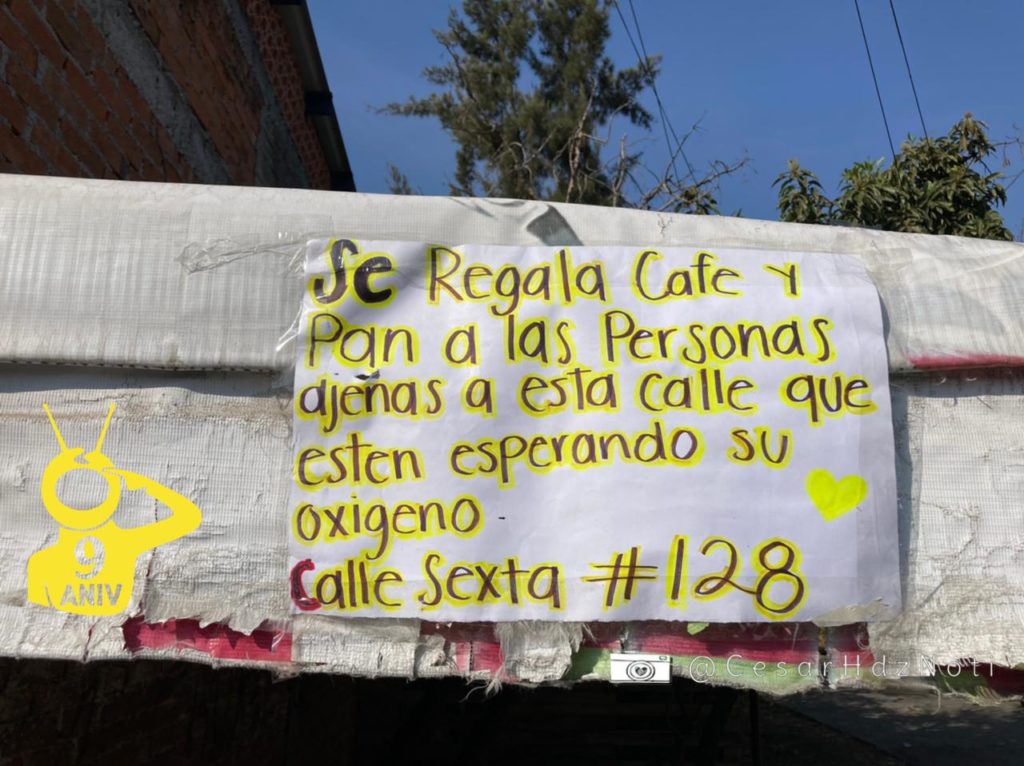 Se Regala Cafe y
Pan a las Personas
ajenas a esta calle que
esten esperando su
oxigeno
Calle Sexta #128
9
ANIV
@CesarHdzNoti